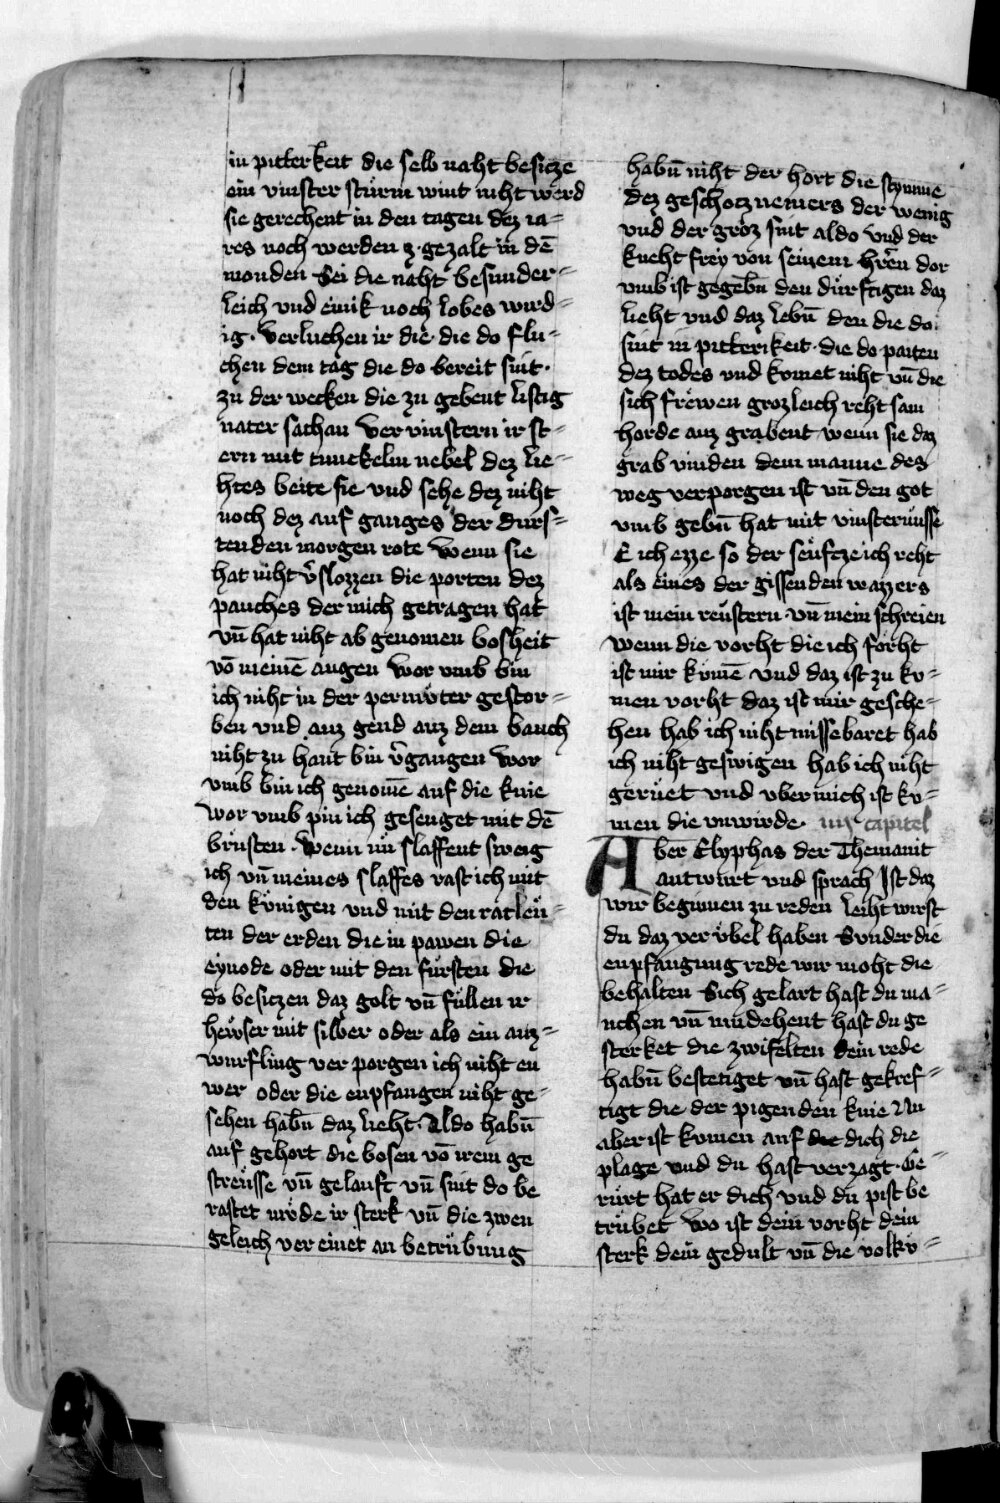 in pitterkeit die selb naht besicze
ein vinster sturm wint niht werd
sie gerechent in den tagen dez ia=
res noch werden z gezalt in dē
monden Sei die naht besunder=
leich vnd einik noch lobes wird=
ig · verluchen ir die die do flu=
chen dem tag die do bereit sint ·
zu der wecken die zu gebent listig
nater sachan Ver vinstern ir st=
ern mit tunckelm nebel dez lie=
htes beite sie vnd sehe dez niht
noch dez auf ganges der durs=
tenden morgen rote Wenn sie
hat niht v̄slozzen die porten dez
pauches der mich getragen hat
vn̄ hat niht ab genomen bosheit
vō meinē augen Wor vmb bin
ich niht in der permuter gestor=
ben vnd auz gend auz dem bauch
niht zu hant bin v̄gangen Wor
vmb bin ich genomē auf die knie
wor vmb pin ich gesenget mit dē
brusten · Wenn nu slaffent sweig
ich vn̄ meines slaffes rast ich mit
den kunigen vnd mit den ratleu=
ten der erden die in pawen die
eynode oder mit den fursten die
do besiczen daz golt vn̄ fullen ir
hewser mit silber oder als ein auz=
wurfling ver porgen ich niht en
wer oder die enpfangen niht ge=
sehen habn̄ daz lieht · Aldo habn̄
auf gehort die bosen vō irem ge
streusse vn̄ gelauft vn̄ sint do be
rastet mude ir sterk vn̄ die zwen
geleich ver einet an betrubung
habn̄ niht der hort die stymme
dez geschocz nemers der wenig
vnd der groz sint aldo vnd der
kneht frey von seinem hr̄en dor
vmb ist gegebn̄ den durftigen daz
lieht vnd daz lebn̄ den die do
sint in pitterikeit · die do paiten
dez todes vnd komet niht vn̄ die
sich frewen grozleich reht sam
horde auz grabent wenn sie daz
grab vinden dem manne des
weg verporgen ist vn̄ den got
vmb gebn̄ hat mit vinsternusse
E ich ezze so der seufcze ich reht
als eines der gissenden wazzers
ist mein reustern · vn̄ mein schreien
wenn die vorht die ich forht
ist mir komē vnd daz ist zu ko=
men vorht daz ist mir gesche=
hen hab ich niht missebaret hab
ich niht geswigen hab ich niht
geruet vnd vber mich ist ko=
men die vnwirde · iiij capitel
Aber Elyphas der Themanit
antwurt vnd sprach Ist daz
wir beginnen zu reden leiht wirst
du daz ver ubel haben Sunder die
enpfangung rede wir moht die
behalten Sich gelart hast du ma=
nchen vn̄ mudehent hast du ge
sterket die zwifelten dein rede
habn̄ bestetiget vn̄ hast gekref=
tigt die der pigenden knie Nu
aber ist komen auf die dich die
plage vnd du hast verzagt · Ge=
rurt hat er dich vnd du pist be
trubet Wo ist dein vorht dein
sterk dein gedult vn̄ die volko=